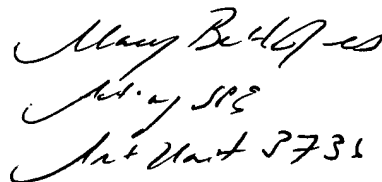 Mary Be
Acting SPE
Art Unit 3738